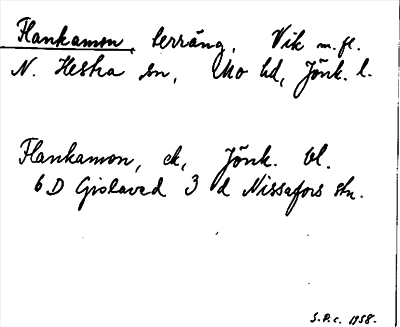 Flankamon, terräng, Vik m. fl.
N. Hestra sn, Mo hd, Jönk. l.
Flankamon, ek, Jönk. bl.
6 D Gislaved 3 d Nissafors stn.
S.P.c. 1958.